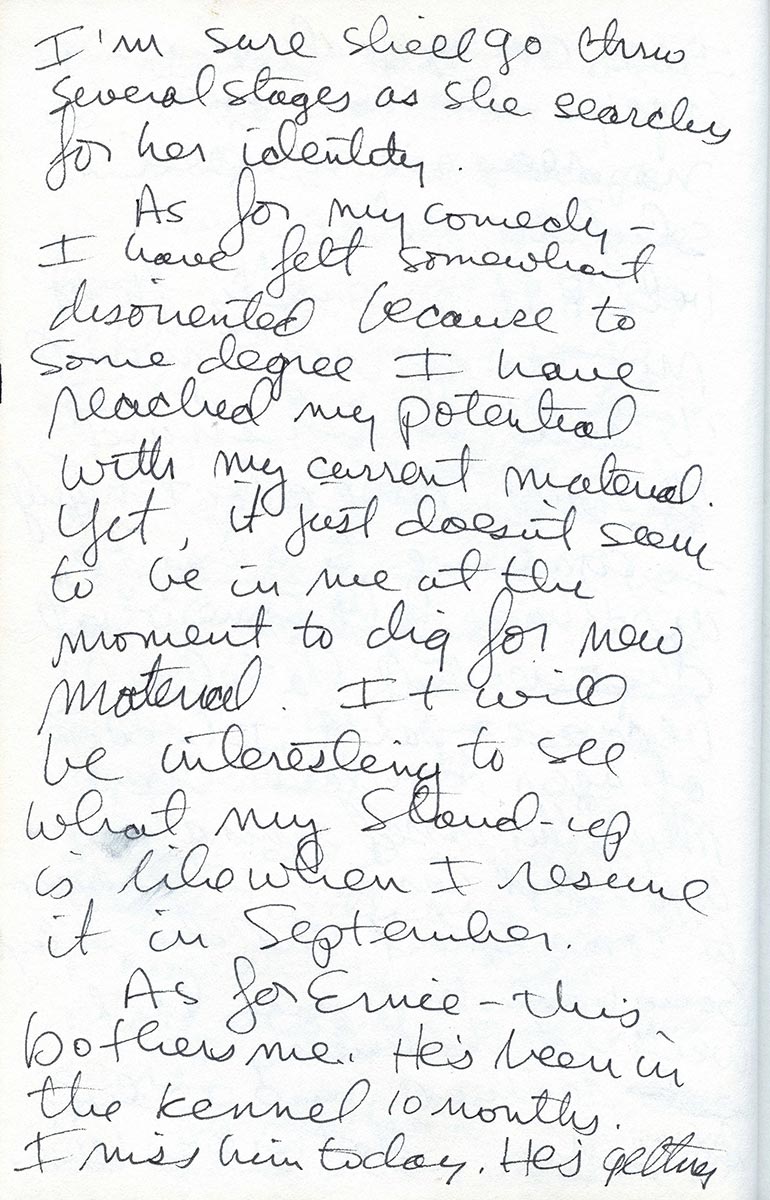 I'm sure she'll go thru
several stages as she searches
for her identity.
As for my comedy –
I have felt somewhat
disoriented because to
some degree I have
reached my potential
with my current material.
Yet, it just doesn't seem
to be in me at the
moment to dig for new
material. It will
be interesting to see
what my Stand-up
is like when I resume
it in September.
As for Ernie – this
bothers me. He's been in
the kennel 10 months.
I miss him today. He's getting